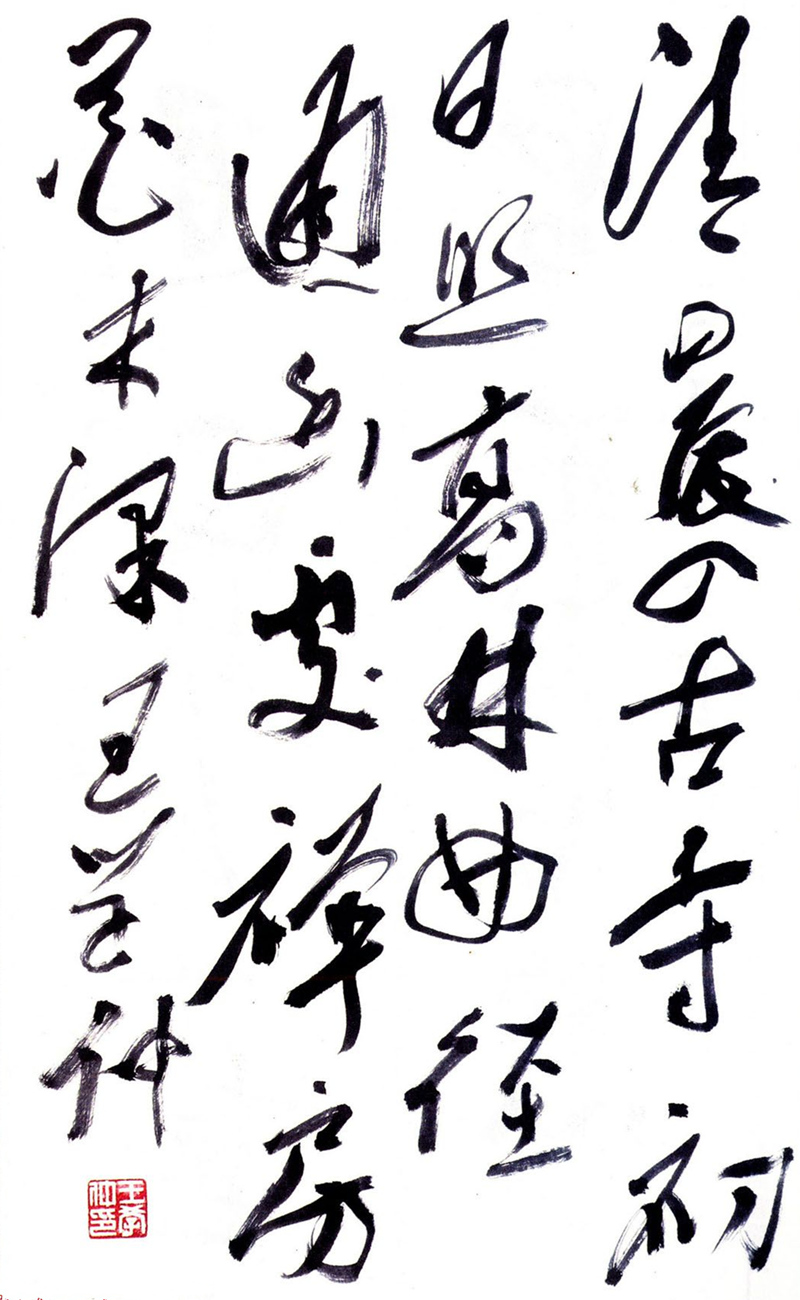 清晨入古寺初
日照高林曲徑
通幽處禪房
花木深 王學仲
王學仲印